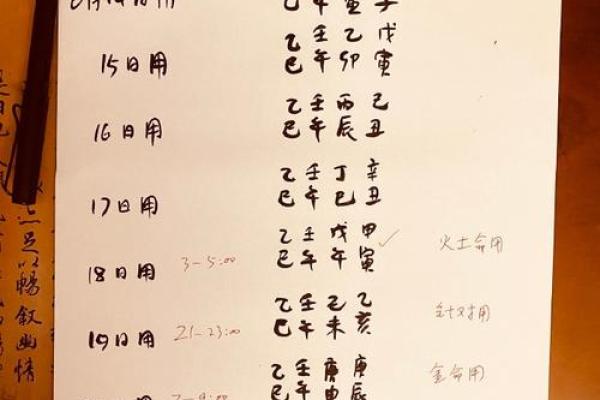 14日用
巳午寅子
乙壬乙戊
15日用 巳午卯寅
乙壬丙己
16日用 巳午辰丑
乙壬丁辛
17日用 巳午巳丑
乙壬戊甲✓
18日用 3-5:00 巳午午寅 火土命用
乙壬己乙
19日用 21-23:00 巳午未亥 针对用
乙壬庚庚
7-9:00 巳午申辰 金命用
足以暢叙幽情